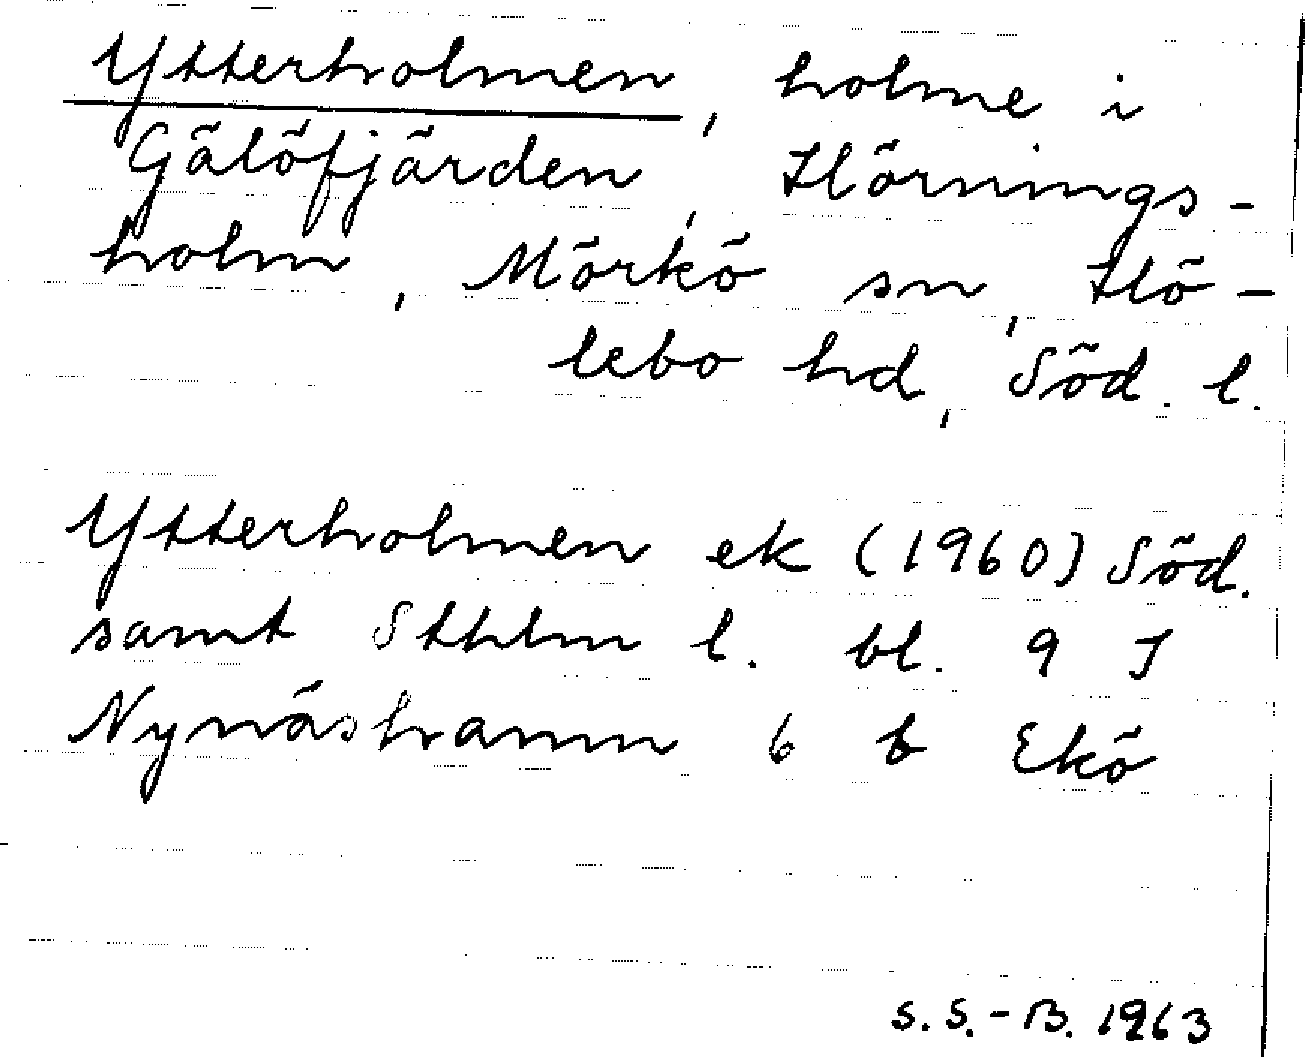 Ytterholmen, holme i
Gälöfjärden, Hörnings-
holm, Mörkö sn, Hö-
lebo hd, Söd. l.
Ytterholmen ek (1960) Söd.
samt Sthlm l. bl. 9 I
Nynäshamn 6 b Ekö
S.S.-B. 1963